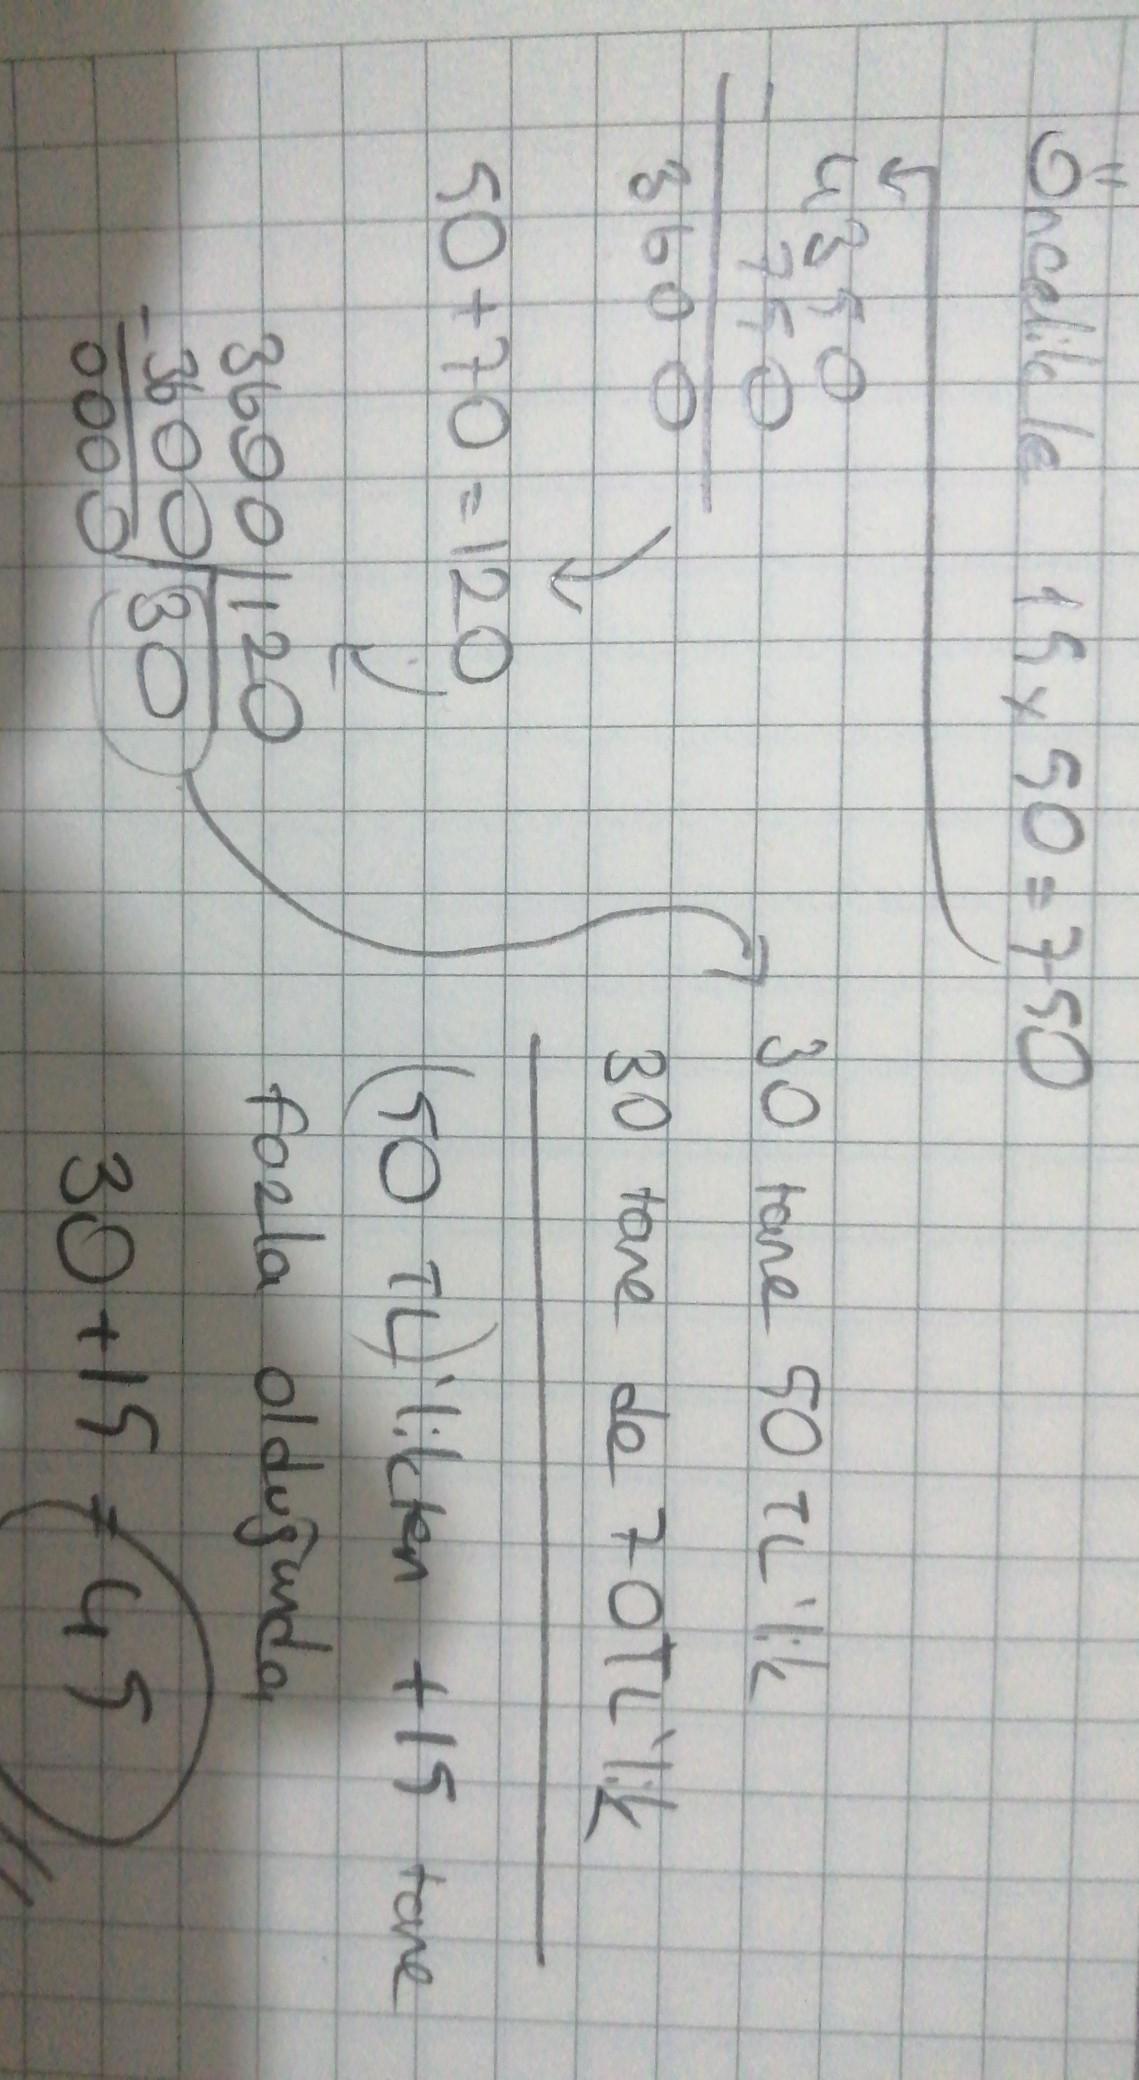 Öncelikle 15 x 50 = 750
4350
- 750
3600
50 + 70 = 120
3600 | 120
- 3600 | 30
0000
30 tane 50 TL'lik
30 tane de 70TL'lik
(50 TL)'likten +15 tane
fazla olduğunda
30 + 15 = 45